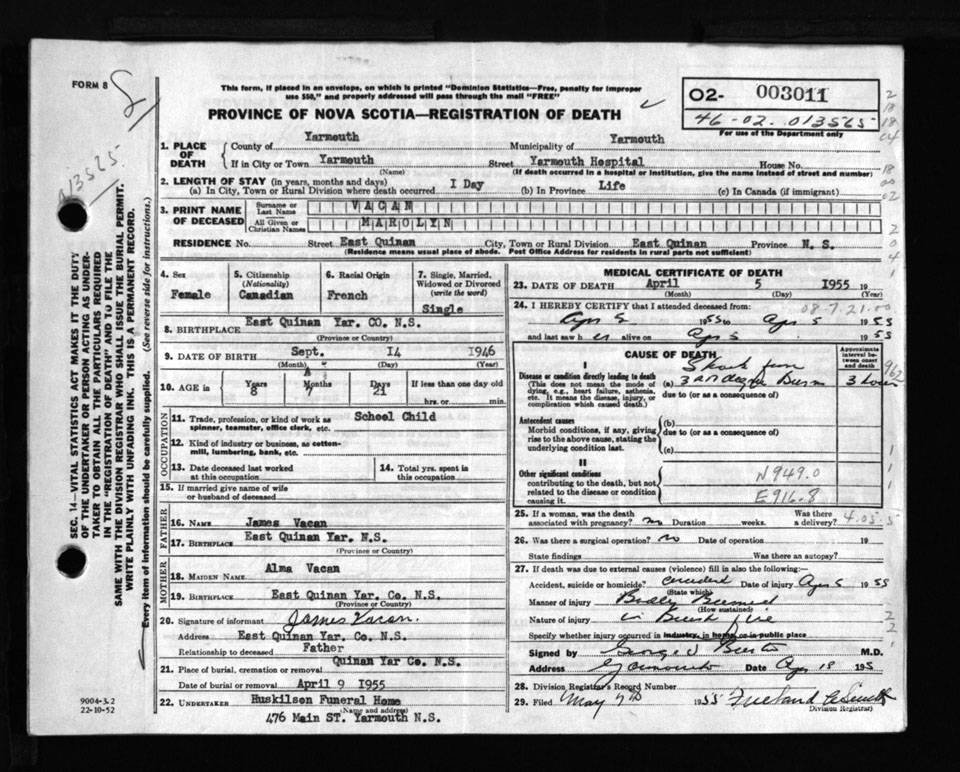 FORM 8
This form, if placed in an envelope, on which is printed "Dominion Statistics—Free, penalty for improper
use $50," and properly addressed will pass through the mail "FREE"
PROVINCE OF NOVA SCOTIA—REGISTRATION OF DEATH
O2- 003011
46-02. 013565
For use of the Department only
013525
SEC. 14—VITAL STATISTICS ACT MAKES IT THE DUTY
OF THE UNDERTAKER OR PERSON ACTING AS UNDER-
TAKER TO OBTAIN ALL THE PARTICULARS REQUIRED
IN THE "REGISTRATION OF DEATH" AND TO FILE THE
SAME WITH THE DIVISION REGISTRAR WHO SHALL ISSUE THE BURIAL PERMIT.
WRITE PLAINLY WITH UNFADING INK. THIS IS A PERMANENT RECORD.
Every item of information should be carefully supplied. (See reverse side for instructions.)
1. PLACE OF DEATH
County of Yarmouth Municipality of Yarmouth
If in City or Town Yarmouth Street Yarmouth Hospital House No.
(Name) (If death occurred in a hospital or institution, give the name instead of street and number)
2. LENGTH OF STAY (in years, months and days)
(a) In City, Town or Rural Division where death occurred I Day (b) In Province Life (c) In Canada (if immigrant)
3. PRINT NAME OF DECEASED
Surname or Last Name VACAN
All Given or Christian Names MAROLYN
RESIDENCE No. Street East Quinan City, Town or Rural Division East Quinan Province N. S.
(Residence means usual place of abode. Post Office Address for residents in rural parts not sufficient)
4. Sex
Female
5. Citizenship
(Nationality)
Canadian
6. Racial Origin
French
7. Single, Married,
Widowed or Divorced
(write the word)
Single
8. BIRTHPLACE East Quinan Yar. CO. N.S.
(Province or Country)
9. DATE OF BIRTH Sept. I4 I946
(Month) (Day) (Year)
10. AGE in
Years 8
Months 7
Days 21
If less than one day old
hrs. or min.
OCCUPATION
11. Trade, profession, or kind of work as
spinner, teamster, office clerk, etc. School Child
12. Kind of industry or business, as cotton-
mill, lumbering, bank, etc.
13. Date deceased last worked
at this occupation
14. Total yrs. spent in
this occupation
15. If married give name of wife
or husband of deceased
FATHER
16. NAME James Vacan
17. BIRTHPLACE East Quinan Yar. N.S.
(Province or Country)
MOTHER
18. MAIDEN NAME Alma Vacan
19. BIRTHPLACE East Quinan Yar. Co. N.S.
(Province or Country)
20. Signature of informant James Vacan.
Address East Quinan Yar. Co. N.S.
Relationship to deceased Father
21. Place of burial, cremation or removal Quinan Yar Co. N.S.
Date of burial or removal April 9 I955
22. UNDERTAKER Huskilson Funeral Home
(Name and address)
476 Main ST. Yarmouth N.S.
9004-3.2
22-10-52
MEDICAL CERTIFICATE OF DEATH
23. DATE OF DEATH April 5 I955 19
(Month) (Day) (Year)
24. I HEREBY CERTIFY that I attended deceased from:
08-7.21.00
Apr 5 1955 to Apr 5 1955
and last saw her alive on Apr 5 1955
CAUSE OF DEATH
Approximate
interval be-
tween onset
and death
I
Disease or condition directly leading to death
(This does not mean the mode of
dying, e.g., heart failure, asthenia,
etc. It means the disease, injury, or
complication which caused death.)
Shock from
(a) 3rd degree Burns 3 hours
due to (or as a consequence of)
Antecedent causes
Morbid conditions, if any, giving
rise to the above cause, stating the
underlying condition last.
(b)
due to (or as a consequence of)
(c)
II
Other significant conditions
contributing to the death, but not
related to the disease or condition
causing it.
N949.0
E916.8
25. If a woman, was the death
associated with pregnancy? no Duration weeks. Was there
a delivery? 4.05.5
26. Was there a surgical operation? no Date of operation 19
State findings Was there an autopsy?
27. If death was due to external causes (violence) fill in also the following:—
Accident, suicide or homicide? accident Date of injury Apr 5 1955
(State which)
Manner of injury Badly Burned
(How sustained)
Nature of injury in Brush fire
Specify whether injury occurred in industry, in home, or in public place
Signed by M.D.
Address Yarmouth Date Apr 18 195
28. Division Registrar's Record Number
29. Filed May 7th 1955
Division Registrar)